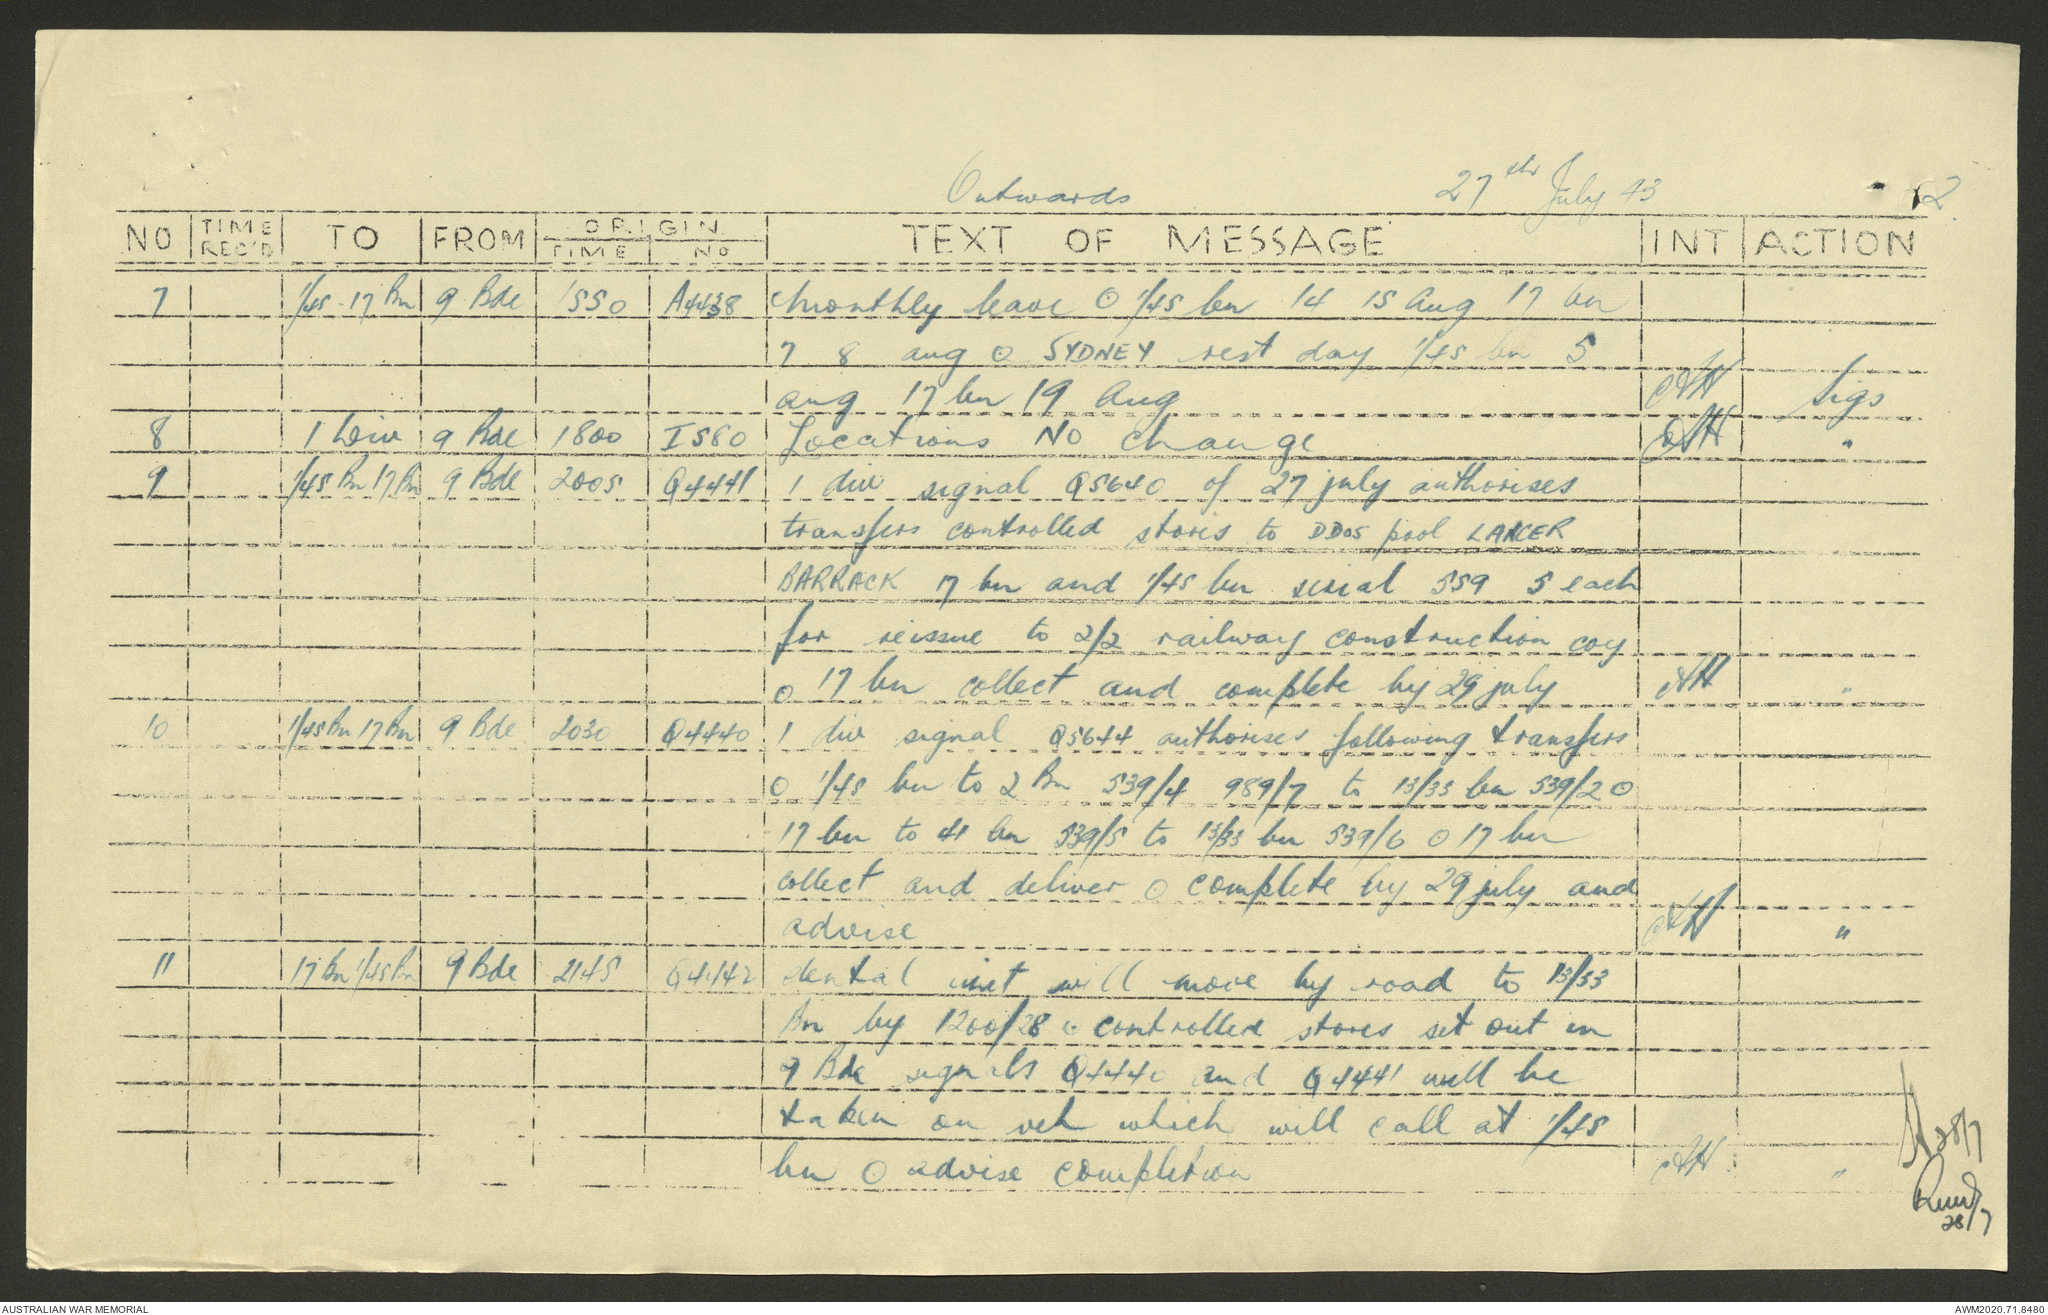 Outwards 27th July 43 2.
NO TIME REC'D TO FROM ORIGIN TIME NO TEXT OF MESSAGE INT ACTION
7 1/45 - 17 Bn 9 Bde 1550 A4438 Monthly leave ⊙ 1/45 bn 14 15 Aug 17 bn
7 8 aug ⊙ SYDNEY rest day 1/45 bn 5
aug 17 bn 19 Aug Sigs
8 1 Div 9 Bde 1800 I580 Locations NO change "
9 1/45 Bn 17 Bn 9 Bde 2005 Q4441 1 div signal Q5640 of 27 july authorises
transfers controlled stores to DDOS pool LANCER
BARRACK 17 bn and 1/45 bn serial 559 5 each
for reissue to 2/2 railway construction coy
⊙ 17 bn collect and complete by 29 july "
10 1/45 Bn 17 Bn 9 Bde 2030 Q4440 1 div signal Q5644 authorises following transfers
⊙ 1/45 bn to 2 Bn 539/4 989/7 to 13/33 bn 539/2 ⊙
17 bn to 41 bn 539/5 to 13/33 bn 539/6 ⊙ 17 bn
collect and deliver ⊙ complete by 29 july and
advise "
11 17 Bn 1/45 Bn 9 Bde 2145 Q4442 dental unit will move by road to 13/33
Bn by 1200/28 ⊙ controlled stores set out in
9 Bde signals Q4440 and Q4441 will be
taken on veh which will call at 1/45
bn ⊙ advise completion "
28/7
28/7
AUSTRALIAN WAR MEMORIAL AWM2020.71.8480